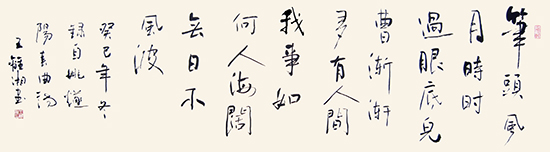 筆頭風
月時時
過眼底兒
曹漸漸
多有人問
我事如
何人海闊
無日不
風波
癸巳年冬
錄自姚燧
陽春曲詞
王